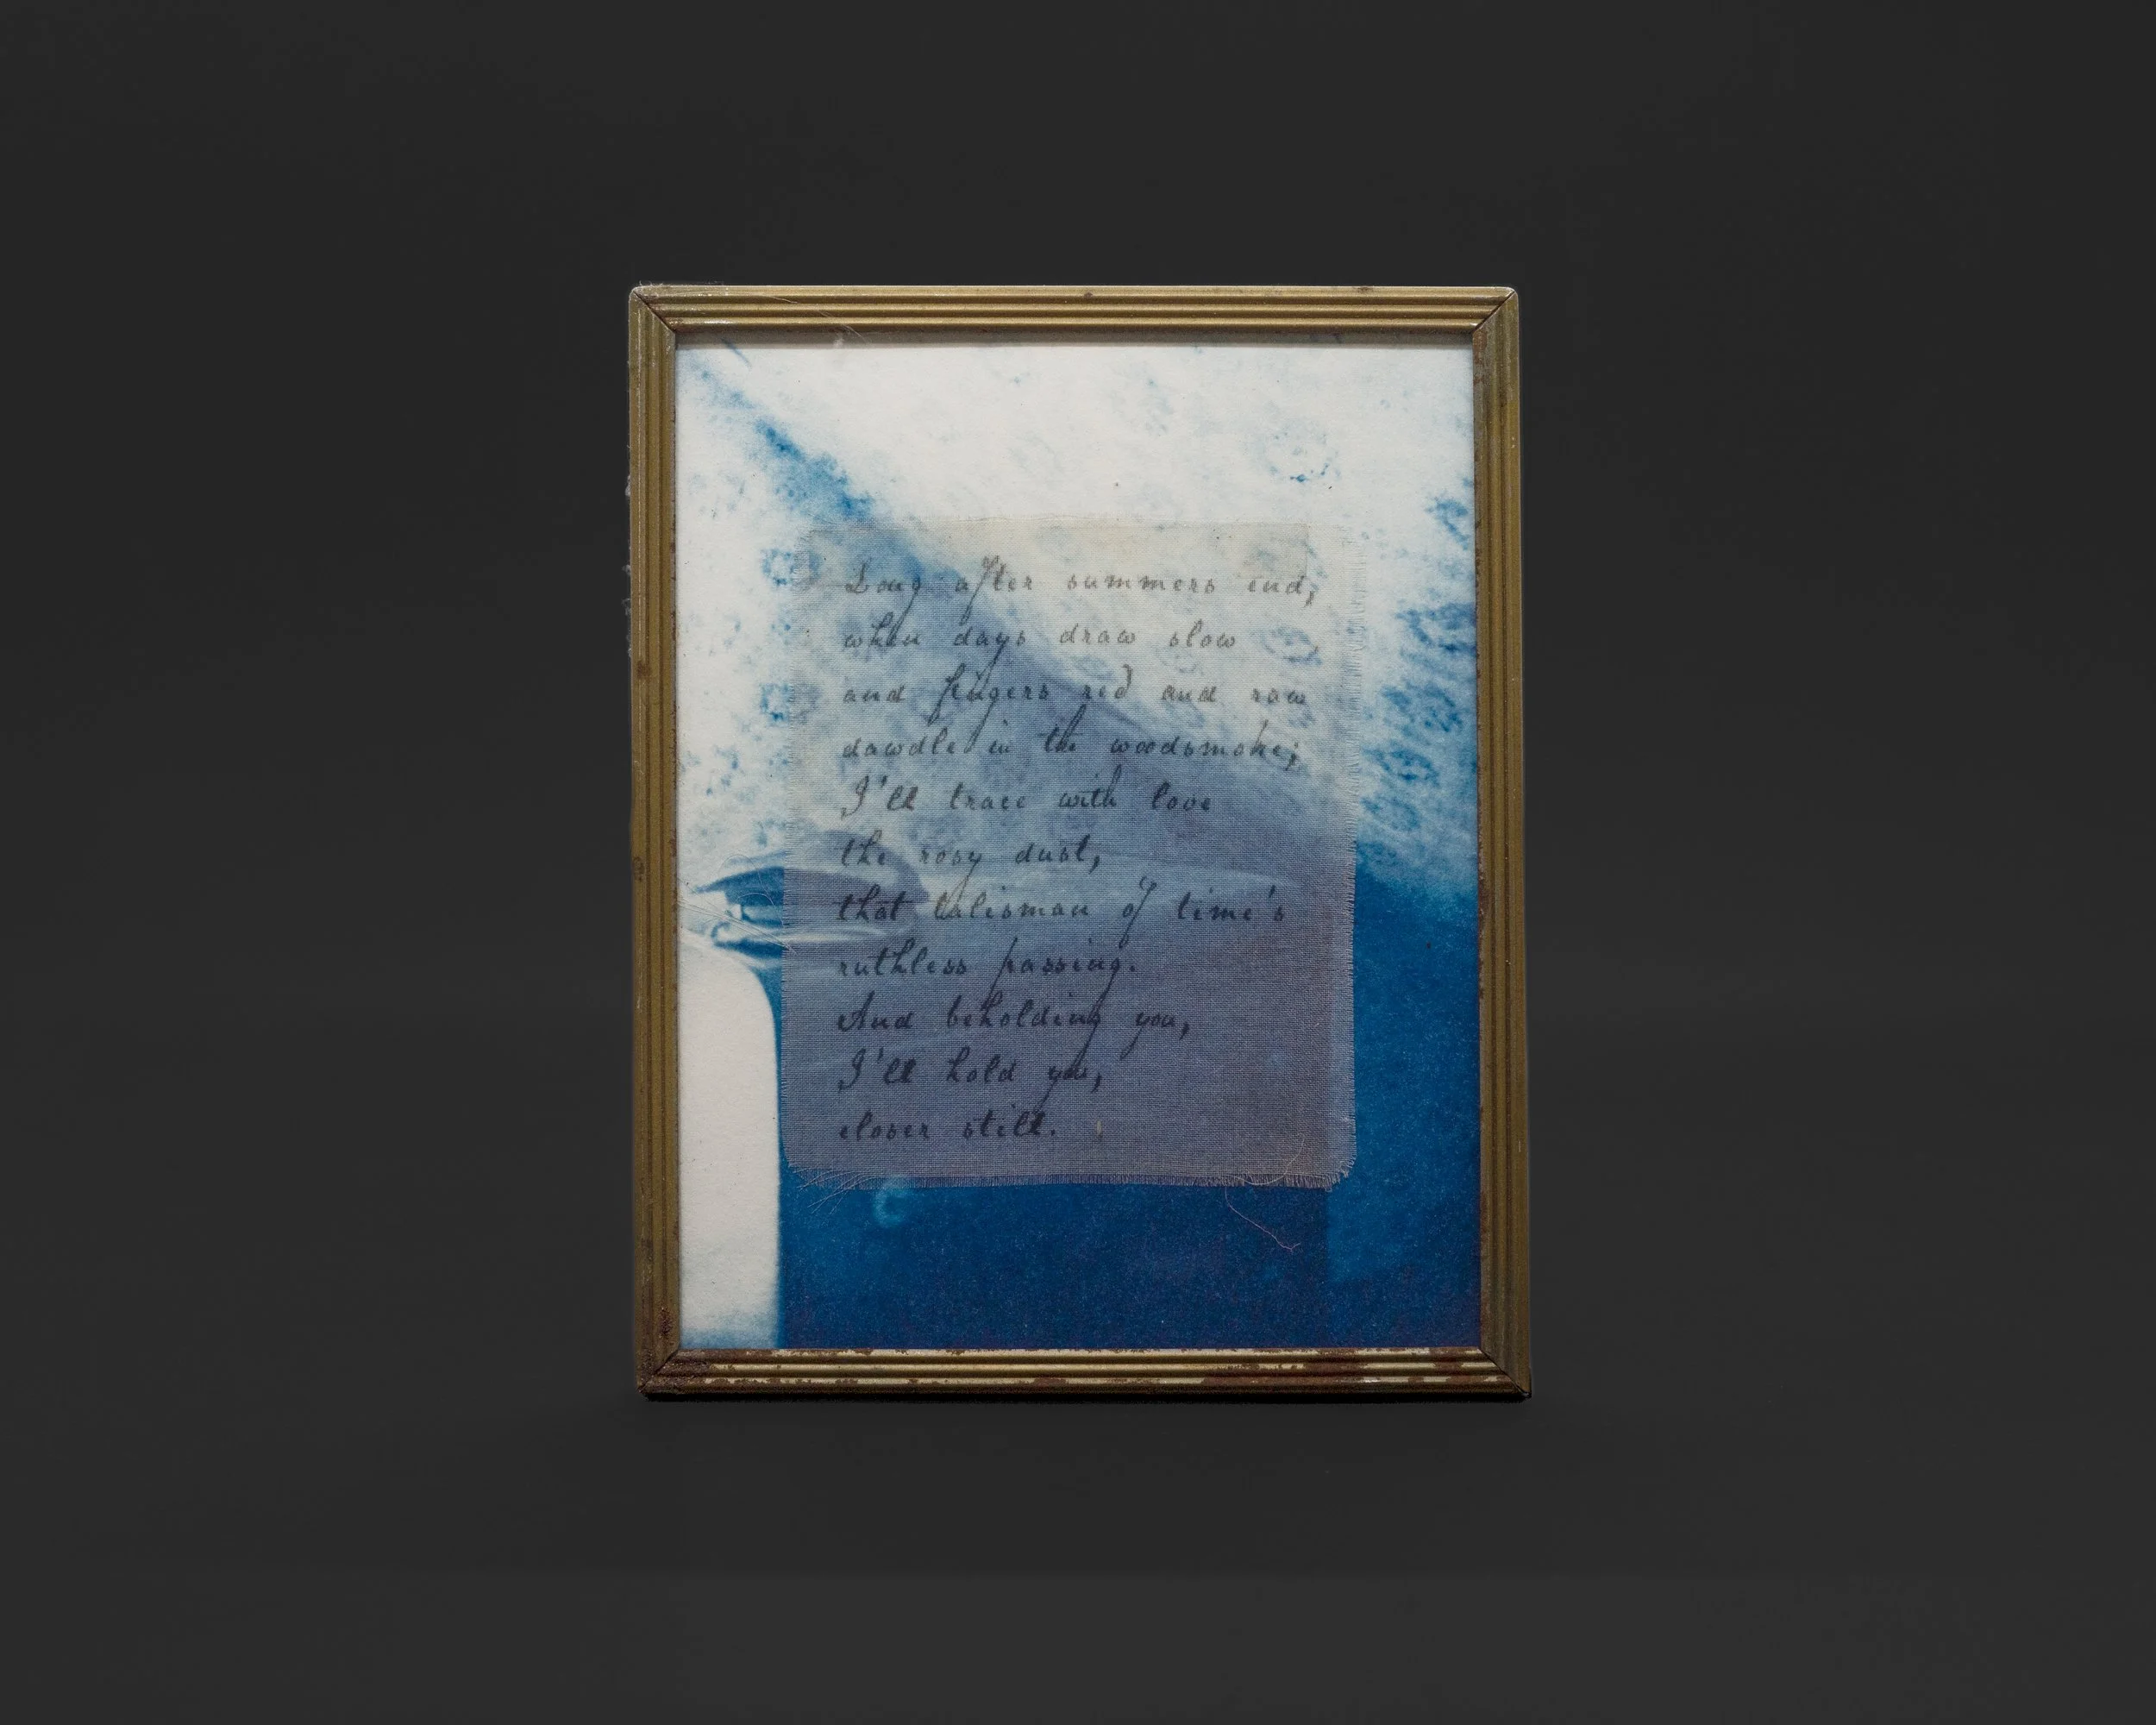 Long after summers end,
when days draw slow
and fingers red and raw
dawdle in the woodsmoke;
I'll trace with love
the rosy dust,
that talisman of time's
ruthless passing.
And beholding you,
I'll hold you,
closer still.